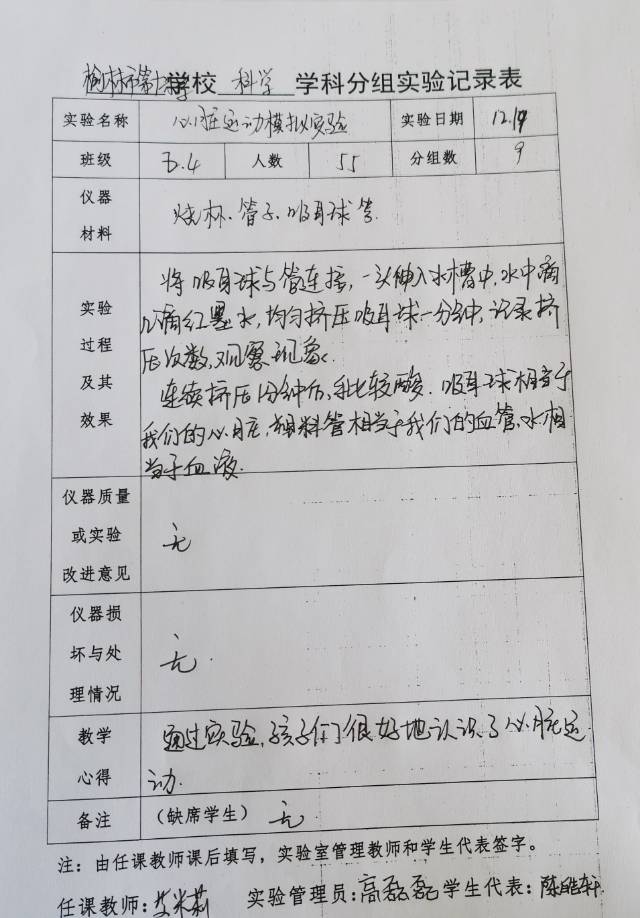 榆林市第十小学学校 科学 学科分组实验记录表
实验名称 心脏运动模拟实验 实验日期 12.19
班级 5.4 人数 55 分组数 9
仪器材料 烧杯、管子、吸耳球等
实验过程及其效果 将吸耳球与管连接,一头伸入水槽中,水中滴
几滴红墨水,均匀挤压吸耳球一分钟,记录挤
压次数,观察现象。
连续挤压1分钟后,手比较酸。吸耳球相当于
我们的心脏,塑料管相当于我们的血管,水相
当于血液.
仪器质量或实验改进意见 无
仪器损坏与处理情况 无.
教学心得 通过实验,孩子们很好地认识了心脏运
动.
备注 (缺席学生) 无
注:由任课教师课后填写,实验室管理教师和学生代表签字。
任课教师:艾米莉 实验管理员:高磊磊 学生代表:陈皓轩